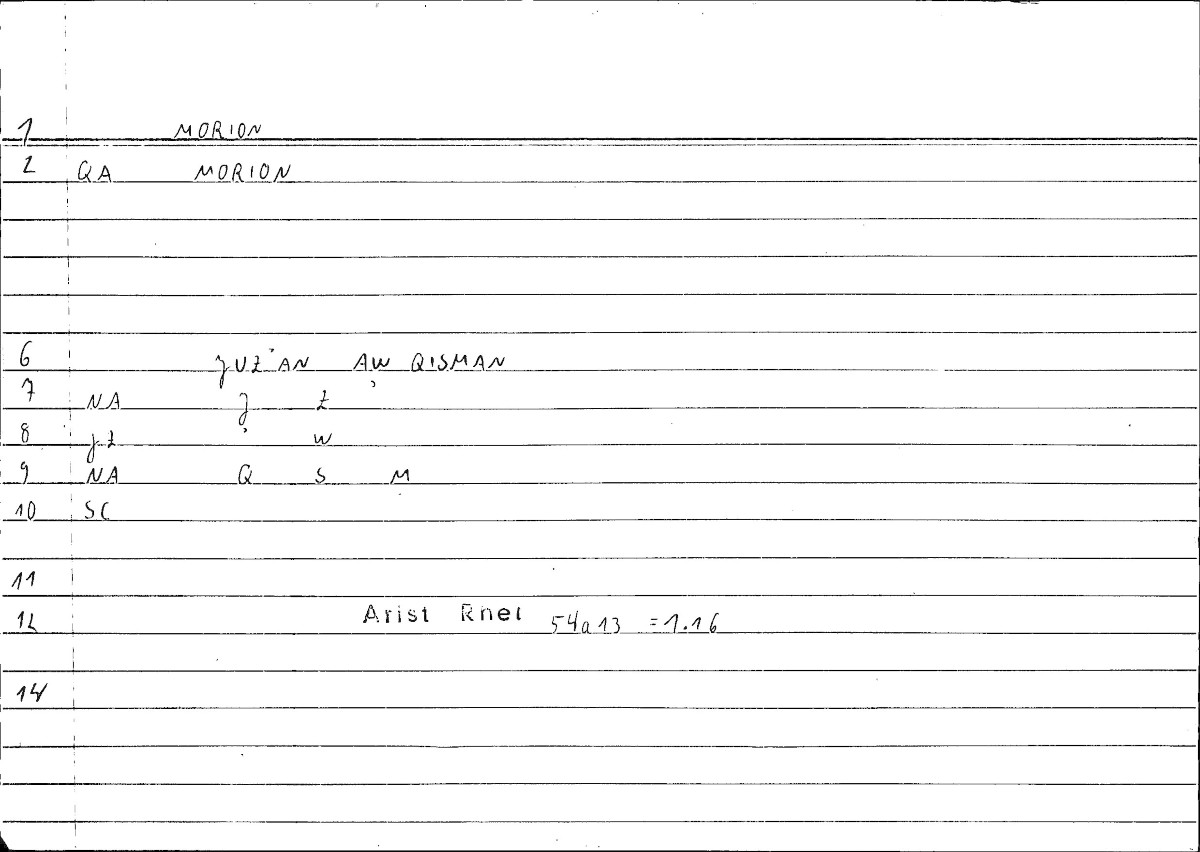 1 MORION
2 QA MORION
6 ȷUZ'AN AW QISMAN
7 NA ȷ Z '
8 ȷZ ' W
9 NA Q S M
10 SC
11
12 Arist Rhet 54a13 =1.16
14